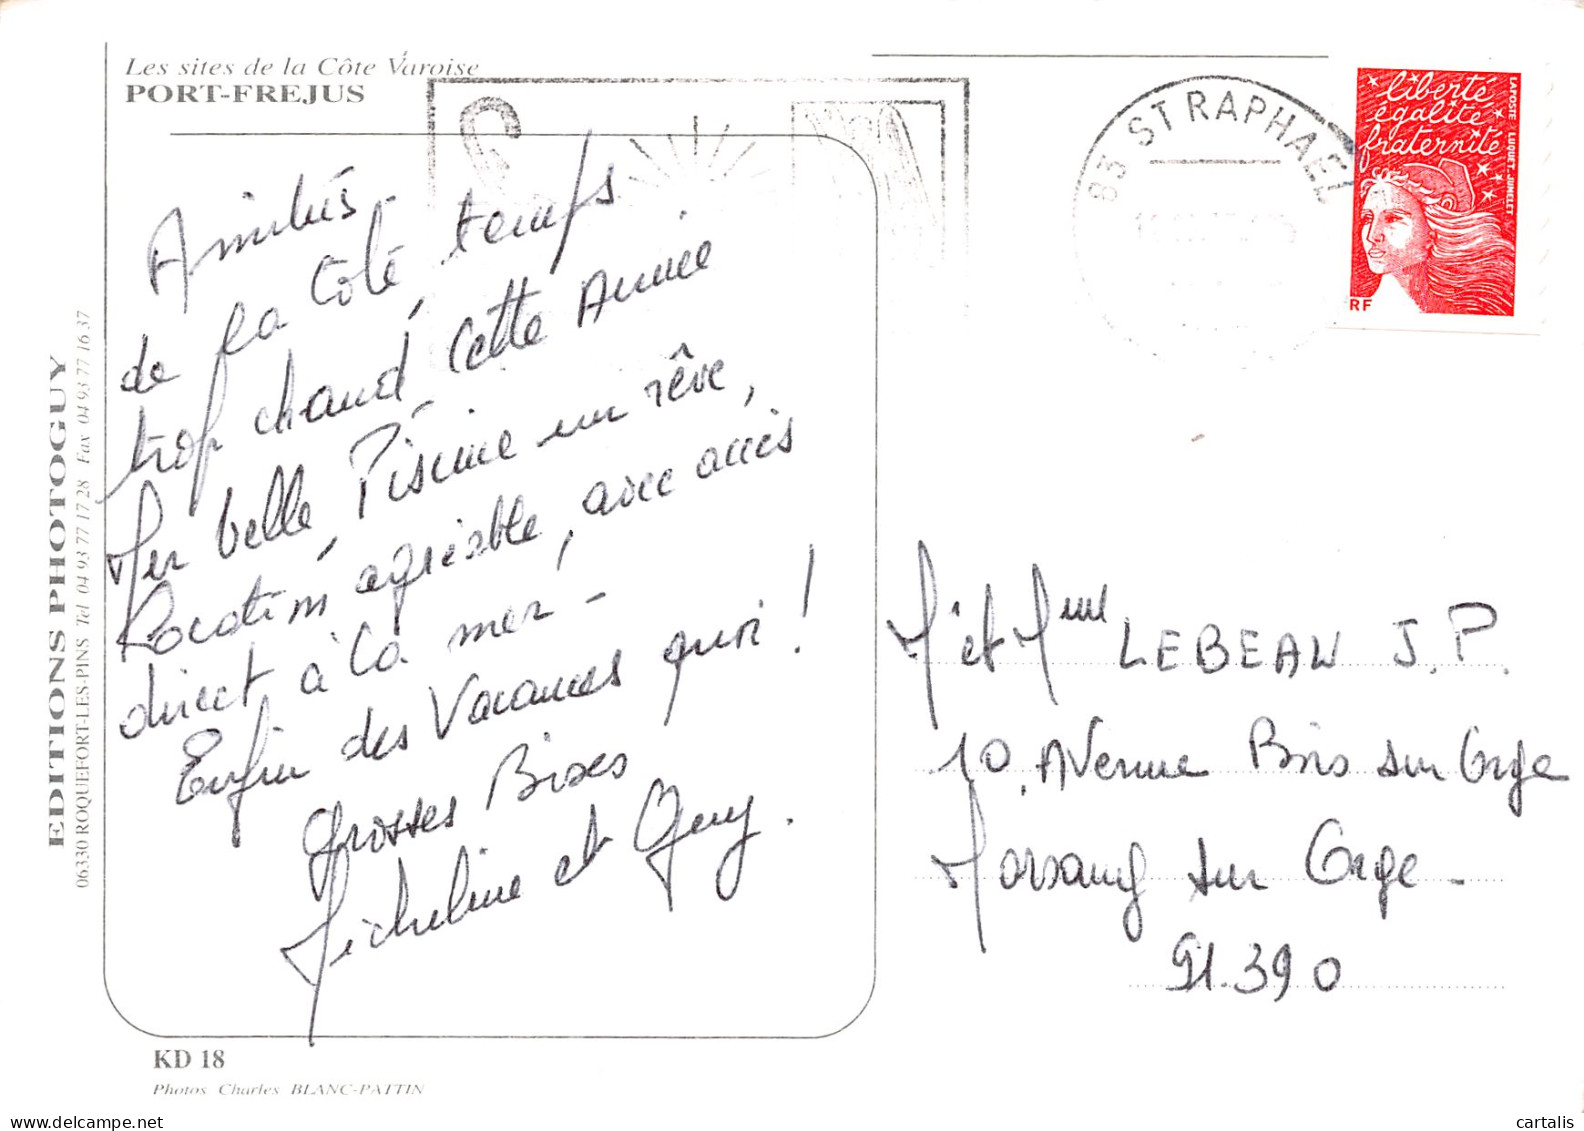 Les sites de la Côte Varoise
PORT-FREJUS
Amitiés
de la Côte, temps
trop chaud cette Année
Mer belle, Piscine un rêve,
Location agréable, avec accès
direct à la mer -
Enfin des Vacances quoi !
Grosses Bises
Micheline et Guy.
KD 18
Photos Charles BLANC-PATTIN
EDITIONS PHOTOGUY
06330 ROQUEFORT-LES-PINS Tel 04 93 77 17 28 Fax 04 93 77 16 37
83 ST RAPHAEL
liberté
égalité
fraternité
LA POSTE LUQUET. JUMELET
RF
M et Mme LEBEAU J.P.
10, Avenue Bois sur Orge
Morsang sur Orge -
91.390
cartalis